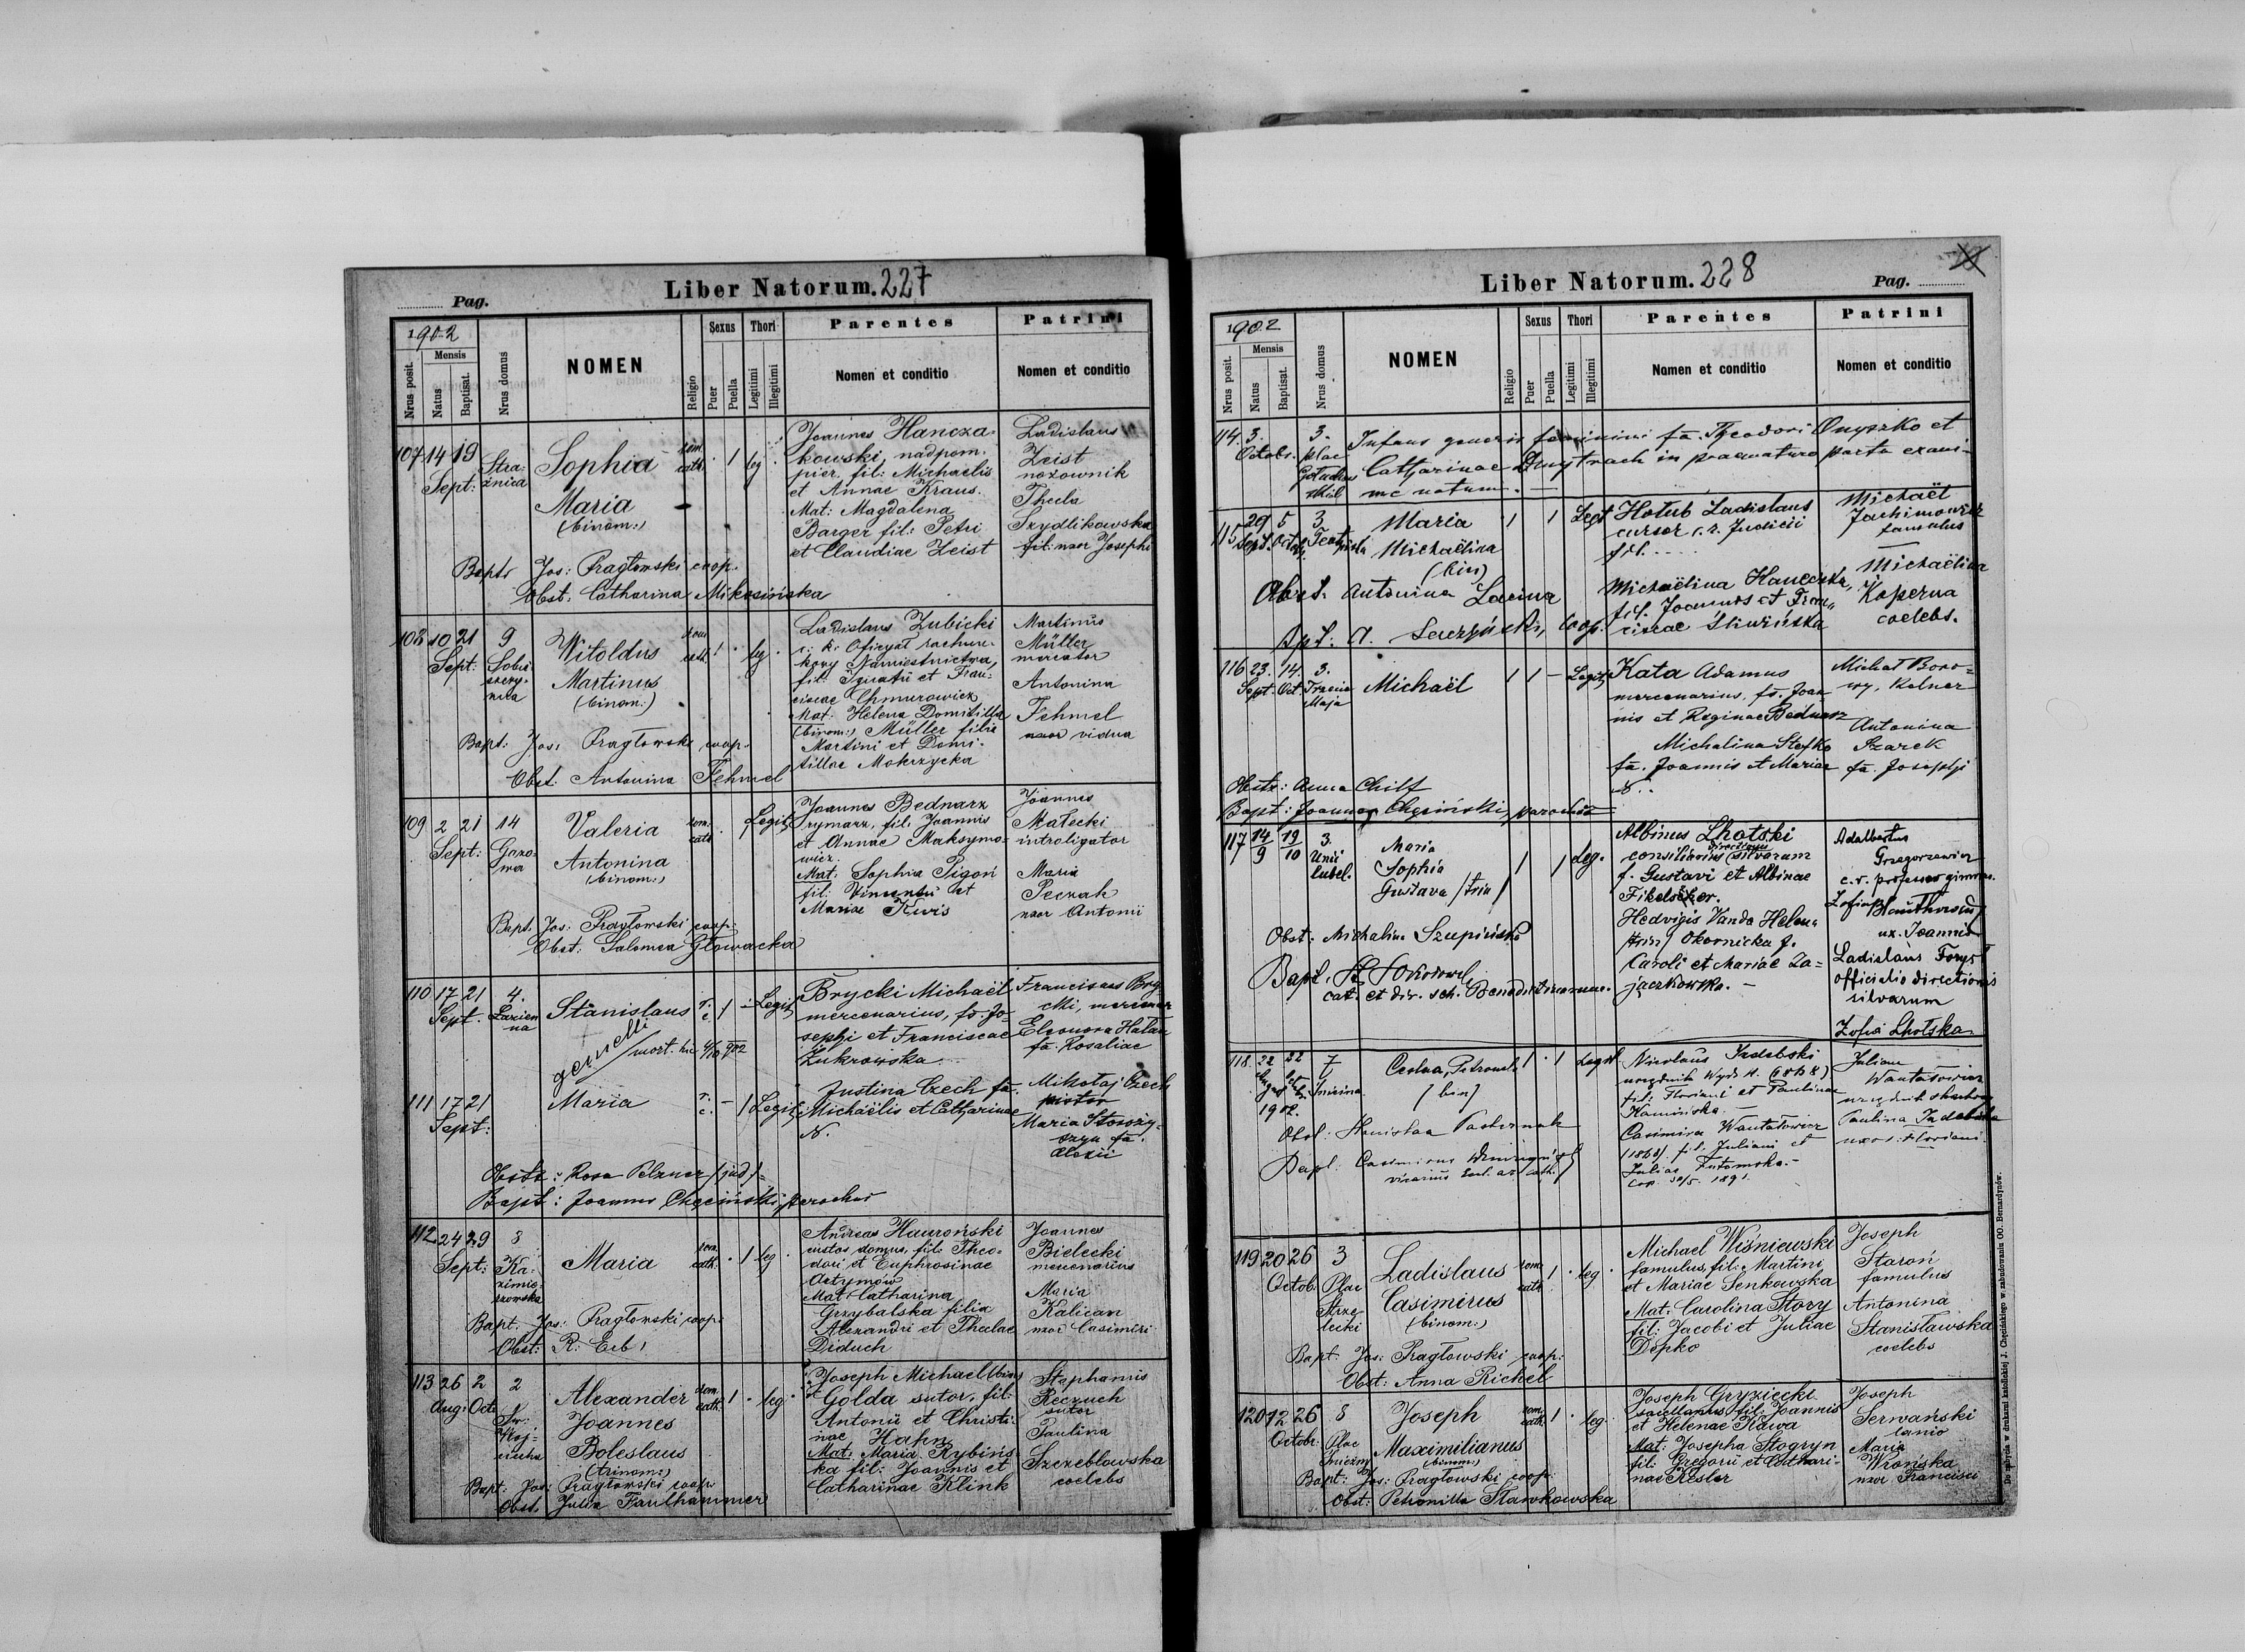 Pag.
Liber Natorum. 227
1902
Nrus posit.
Mensis
Natus
Baptisat.
Nrus domus
NOMEN
Religio
Sexus
Puer
Puella
Thori
Legitimi
Illegitimi
Parentes
Nomen et conditio
Patrini
Nomen et conditio
107 14 19
Sept:
Stra-
żnica
Sophia
Maria
(binom:)
rom.
cath. · 1 leg ·
Joannes Hancza-
kowski, nadpom-
pier, fil: Michaelis
et Annae Kraus.
Mat: Magdalena
Barger fil: Petri
et Claudiae Zeist
Ladislaus
Zeist
nożownik
Thecla
Szydlikowska
fil: uxor Josephi
Bapt: Jos: Pragłowski coop.
Obst: Catharina Mikosińska
108 10 21 9
Sept:
Witoldus
Martinus
(binom:)
rom
cath. 1 · leg ·
Ladislaus Zubicki
c. k. Oficyał rachun-
kowy Namiestnictwa,
fil: Ignatii et Fran-
ciscae Chmurowicz
Mat: Helena Domitilla
(binom:) Müller filia
Martini et Domi-
tillae Mokrzycka
Martinus
Müller
mercator
Antonina
Fehmel
uxor vidua
Bapt: Jos: Pragłowski coop.
Obst: Antonina Fehmel
109 2 21 14
Sept:
Gazo-
wa
Valeria
Antonina
(binom:)
rom.
cath · 1 Legit
Joannes Bednarz
rymarz, fil: Joannis
et Annae Maksymo-
wicz.
Mat: Sophia Pigoń
fil: Vincentii et
Mariae Kwis
Joannes
Małecki
introligator
Maria
Peczak
uxor Antonii
Bapt. Jos: Pragłowski coop:
Obst: Salomea Głowacka
110 17 21 4.
Sept.
Łazien
na
Stanislaus
gemelli
mort. hic 4/10 902
r.
c. 1 - Legit
Brycki Michaël
mercenarius, fs. Jo-
sephi et Franciscae
Żukrowska
Franciscus Bry-
cki, mercenar
Eleonora
fa. Rosaliae
111 17 21
Sept:
Maria
r.
c. - 1 Legit
Justina Czech fa.
Michaëlis et Catharinae
N.
Mikołaj Czech
pistor
Maria
fa.
Alexii
Obstr: Rosa Pelzner (jud)
Bapt: Joannes Chęciński, parochus
112 24 29 8
Sept:
Ka-
zimie-
rzowska
Maria
rom.
cath. · 1 leg ·
Andreas Hawroński
custos domus, fil: Theo-
dori et Euphrosinae
Artymów
Mat: Catharina
Grzybalska filia
Alexandri et Theclae
Diduch
Joannes
Bielecki
mercenarius
Maria
Kalican
uxor Casimiri
Bapt: Jos: Pragłowski coop:
Obst: R. Erb
113 26 2 2
Aug: Oct:
Św:
Woj-
ciecha
Alexander
Joannes
Boleslaus
(trinom:)
rom.
cath. 1 · leg ·
Joseph Michael (bin)
Golda sutor, fil:
Antonii et Christi-
nae Hahn
Mat: Maria Rybińs-
ka fil: Joannis et
Catharinae Klink
Stephanus
Reczuch
sutor
Paulina
Szczeblowska
coelebs
Bapt: Jos: Pragłowski coop.
Obst. Julia Faulhammer
Liber Natorum. 228
Pag.
1902
Nrus posit.
Mensis
Natus
Baptisat.
Nrus domus
NOMEN
Religio
Sexus
Puer
Puella
Thori
Legitimi
Illegitimi
Parentes
Nomen et conditio
Patrini
Nomen et conditio
114. 3. 3.
Octobr. plac
Infans generis feminini fa. Theodori Onyszko et
Catharinae Dmytrach in praematuro partu exani-
me natum. —
115 29 5 3
Sept. Octob.
Maria
Michaëlina
(bin)
1 1 Legt
Hołub Ladislaus
cursor c. r. Judicii
fil. ....
Michaëlina Hanecska,
fil. Joannis et Fran-
ciscae Śliwińska
Michaël
Jachimowicz
famulus
—
Michaëlina
Koperna
coelebs.
Obst. Antonina Lacina
Bpt: A. coop.
116 23. 14. 3.
Sept. Oct. Trzeciego
Maja
Michaël
1 1 - Legit
Kata Adamus
mercenarius, fs. Joan-
nis et Reginae Bednarz
Michalina Stefko
fa. Joannis et Mariae
N..
Michał Boro-
wy, kelner
Antonina
Szarek
fa. Josephi
Obstr: Anna Chilf
Bapt: Joannes Chęciński, parochus
117 14/9 19/10 3.
Unii
lubel.
Maria
Sophia
Gustava /trin/
1 1 Leg.
Albinus Lhotski
consiliarius directionis silvarum
f. Gustavi et Albinae
Fikelscher.
Hedvigis Vanda Helena
/trin/ Okornicka f.
Caroli et Mariae Za-
jączkowska. —
Adalbertus
Grzegorzewicz
c. r. professor gimnas.
Zofia
ux. Joannis
Ladislaus Foryst
officialis directionis
silvarum
Zofia Lhotska
Obst: Michalina Szupińska
Bapt.
cat. et dir. sch. Benedictinarum.
118. 22 22 7
August
1902.
Śnieżna
/ bin/
1 · 1 Legit
Nicolaus Izdebski
urzędnik Wydz. kr. (1868)
fil: Floriani et Paulinae
Kamińska. —
Casimira Wantatowicz
(1868) fil. Juliani et
Juliae Futomska. —
Cop. 30/5. 1891.
Julian
Wantatowicz
urzędnik skarbowy
Paulina Izdebska
uxor: Floriani
Obst: Stanisłaa Pasternak
Bapt: Casimirus
vicarius
119 20 26 3
Octob: Plac
Strze-
lecki
Ladislaus
Casimirus
(binom:)
rom.
cath 1 · leg ·
Michael Wiśniewski
famulus, fil: Martini
et Mariae Senkowska
Mat: Carolina Story
fil: Jacobi et Juliae
Dopko
Joseph
Staroń
famulus
Antonina
Stanisławska
coelebs
Bapt: Jos: Pragłowski coop:
Obst: Anna Richel
120 12 26 8
Octobr: Plac
Śnieżny
Joseph
Maximilianus
(binom:)
rom.
cath. 1 · leg ·
Joseph Gryziecki
sacellanus fil: Joannis
et Helenae Kawa
Mat: Josepha Stogryn
fil: Gregorii et Cathari-
nae Kesler
Joseph
Serwański
lanio
Maria
Wrońska
uxor Francisci
Bapt: Jos: Pragłowski coop:
Obst: Petronilla Sławkowska
Do nabycia w drukarni katolickiej J. Chęcińskiego w zabudowaniu OO. Bernardynów.